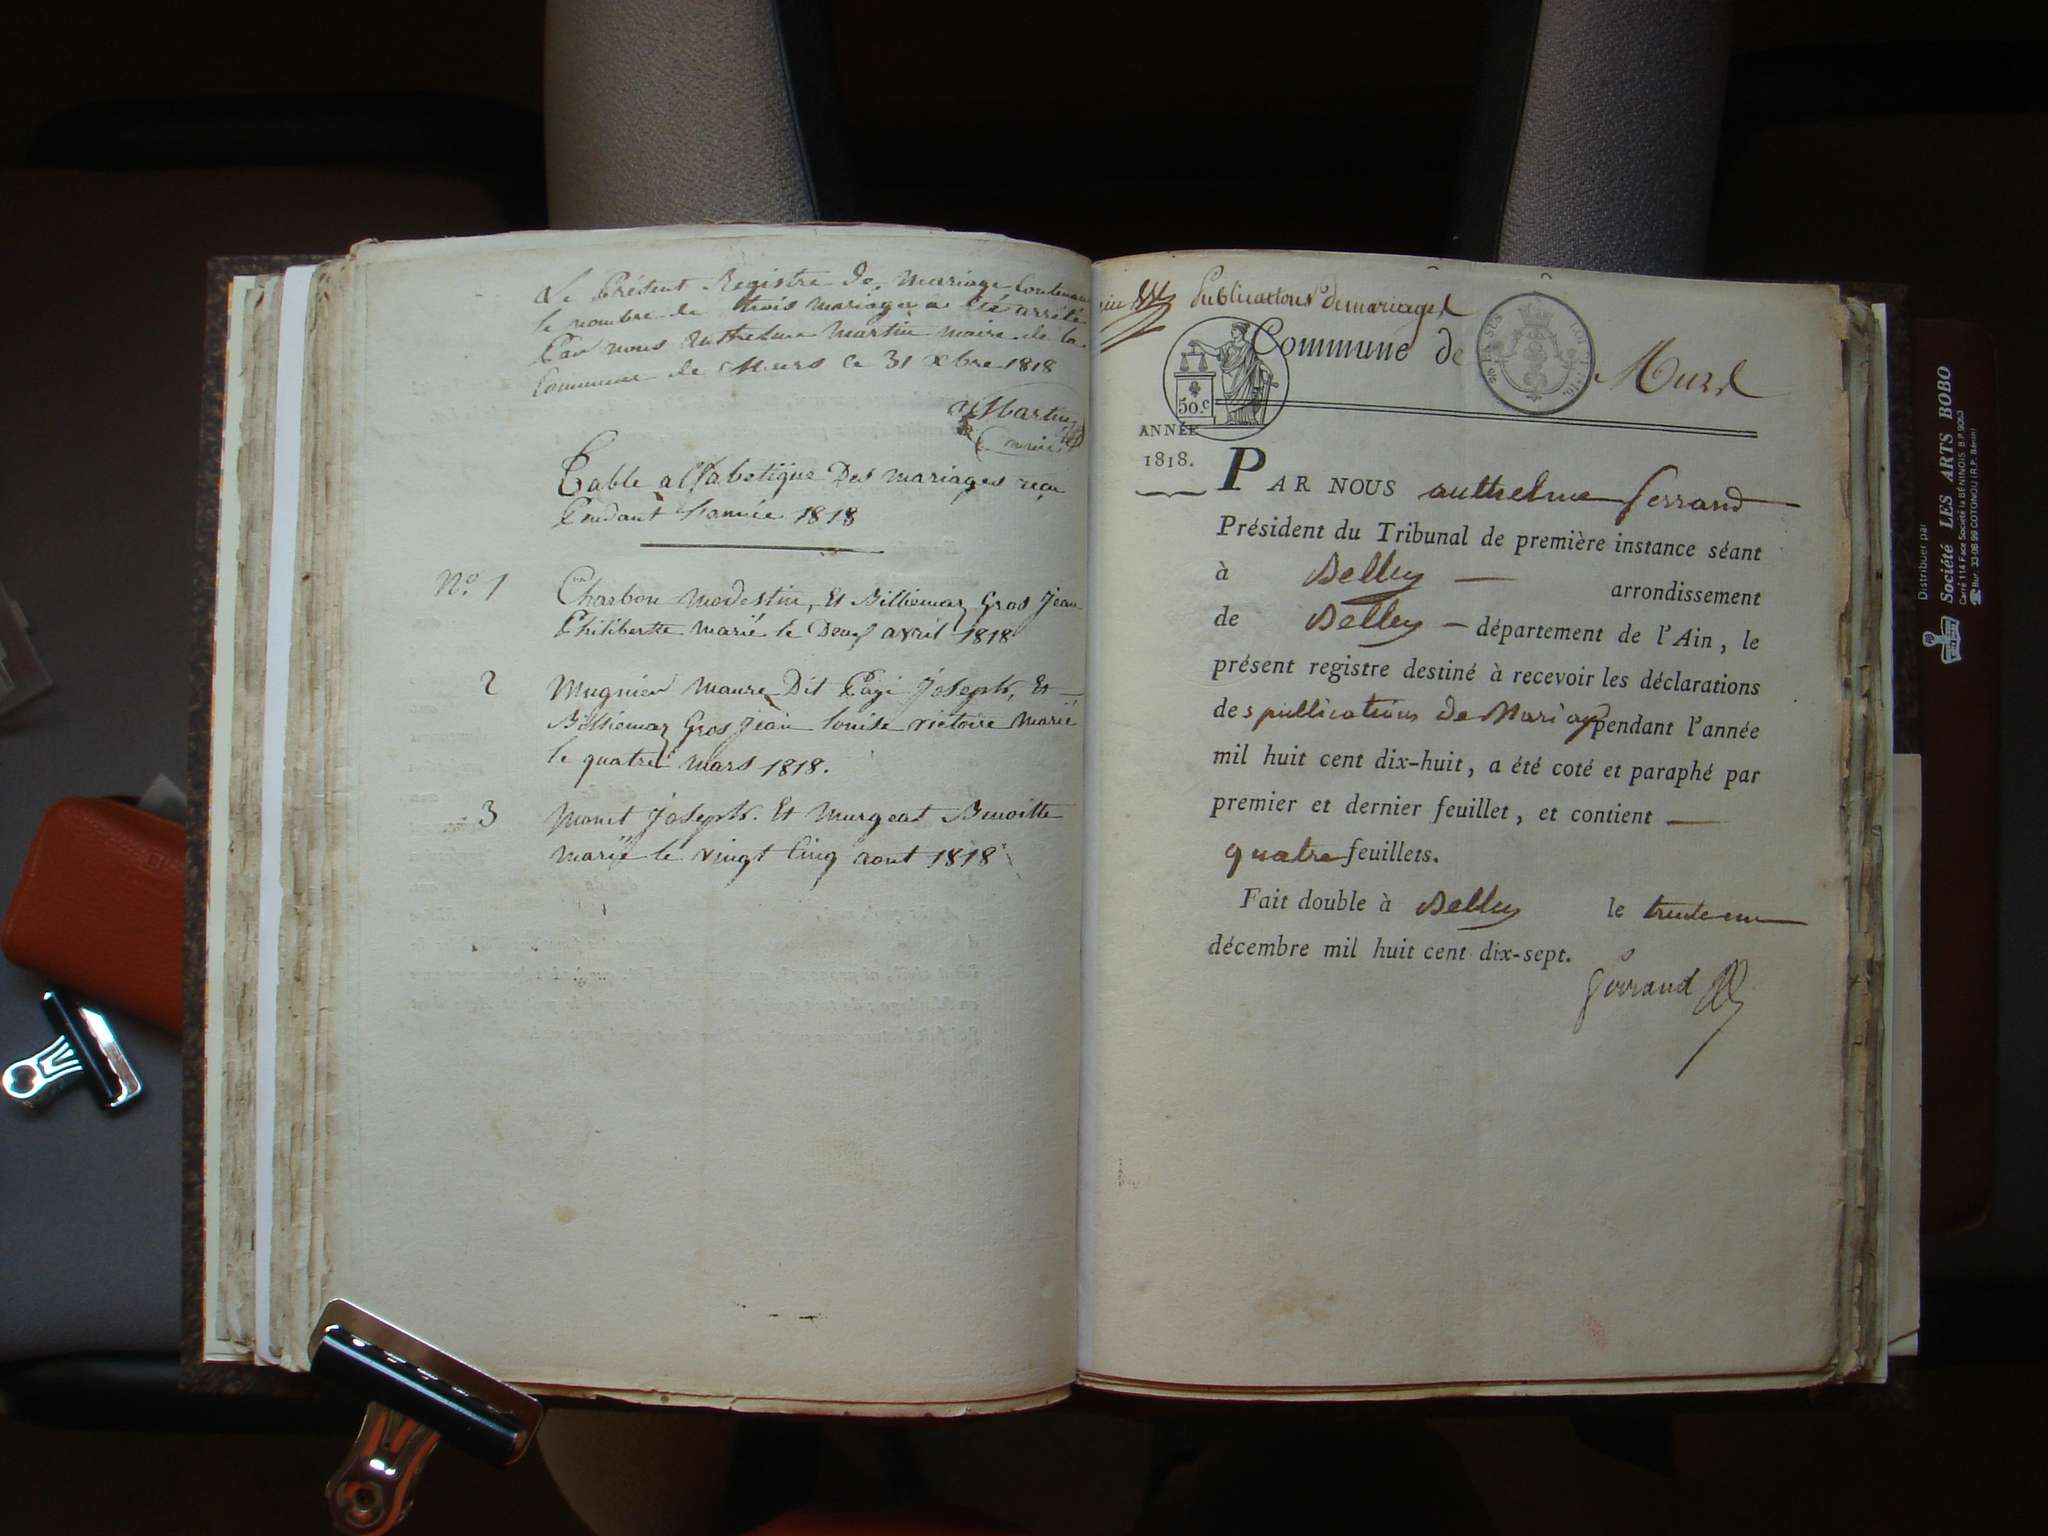 Le Présent Registre de Mariage Contenant
le nombre de trois mariages a été arrêté
Par nous Anthelme Martin maire de la
Commune de Murs le 31 Xbre 1818
Martin
maire
Table alfabetique Des mariages reçu
Pendant l'année 1818
No. 1 Charbon modestin, Et Billiemaz Gros Jean
Philiberthe marié le Deux avril 1818
2 Mugnier Maure Dit Pagi Joseph, Et
Billiemaz Gros Jean louise victoire marié
le quatre mars 1818.
3 Monet Joseph. Et Murgeat Benoitte
marié le vingt Cinq aout 1818
Publications de mariages
Commune de Murs
50.c
ANNÉE
1818.
PAR NOUS anthelme ferrand
Président du Tribunal de première instance séant
à Belley arrondissement
de Belley département de l'Ain, le
présent registre destiné à recevoir les déclarations
des publications de Mariage pendant l'année
mil huit cent dix-huit, a été coté et paraphé par
premier et dernier feuillet, et contient
quatre feuillets.
Fait double à Belley le trente un
décembre mil huit cent dix-sept.
ferrand
Distribuer par
Société LES ARTS BOBO
Carré 114 Face Société la BÉNINOIS. B.P. 9053
Bur. 33-08 99 COTONOU (R.P. Bénin)